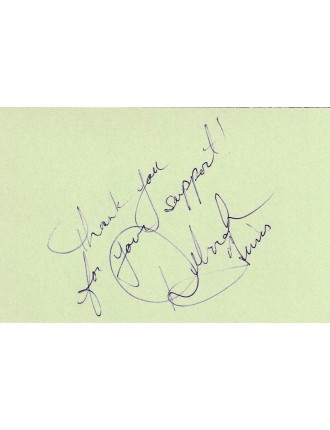 Thank you
for your support!
Deborah